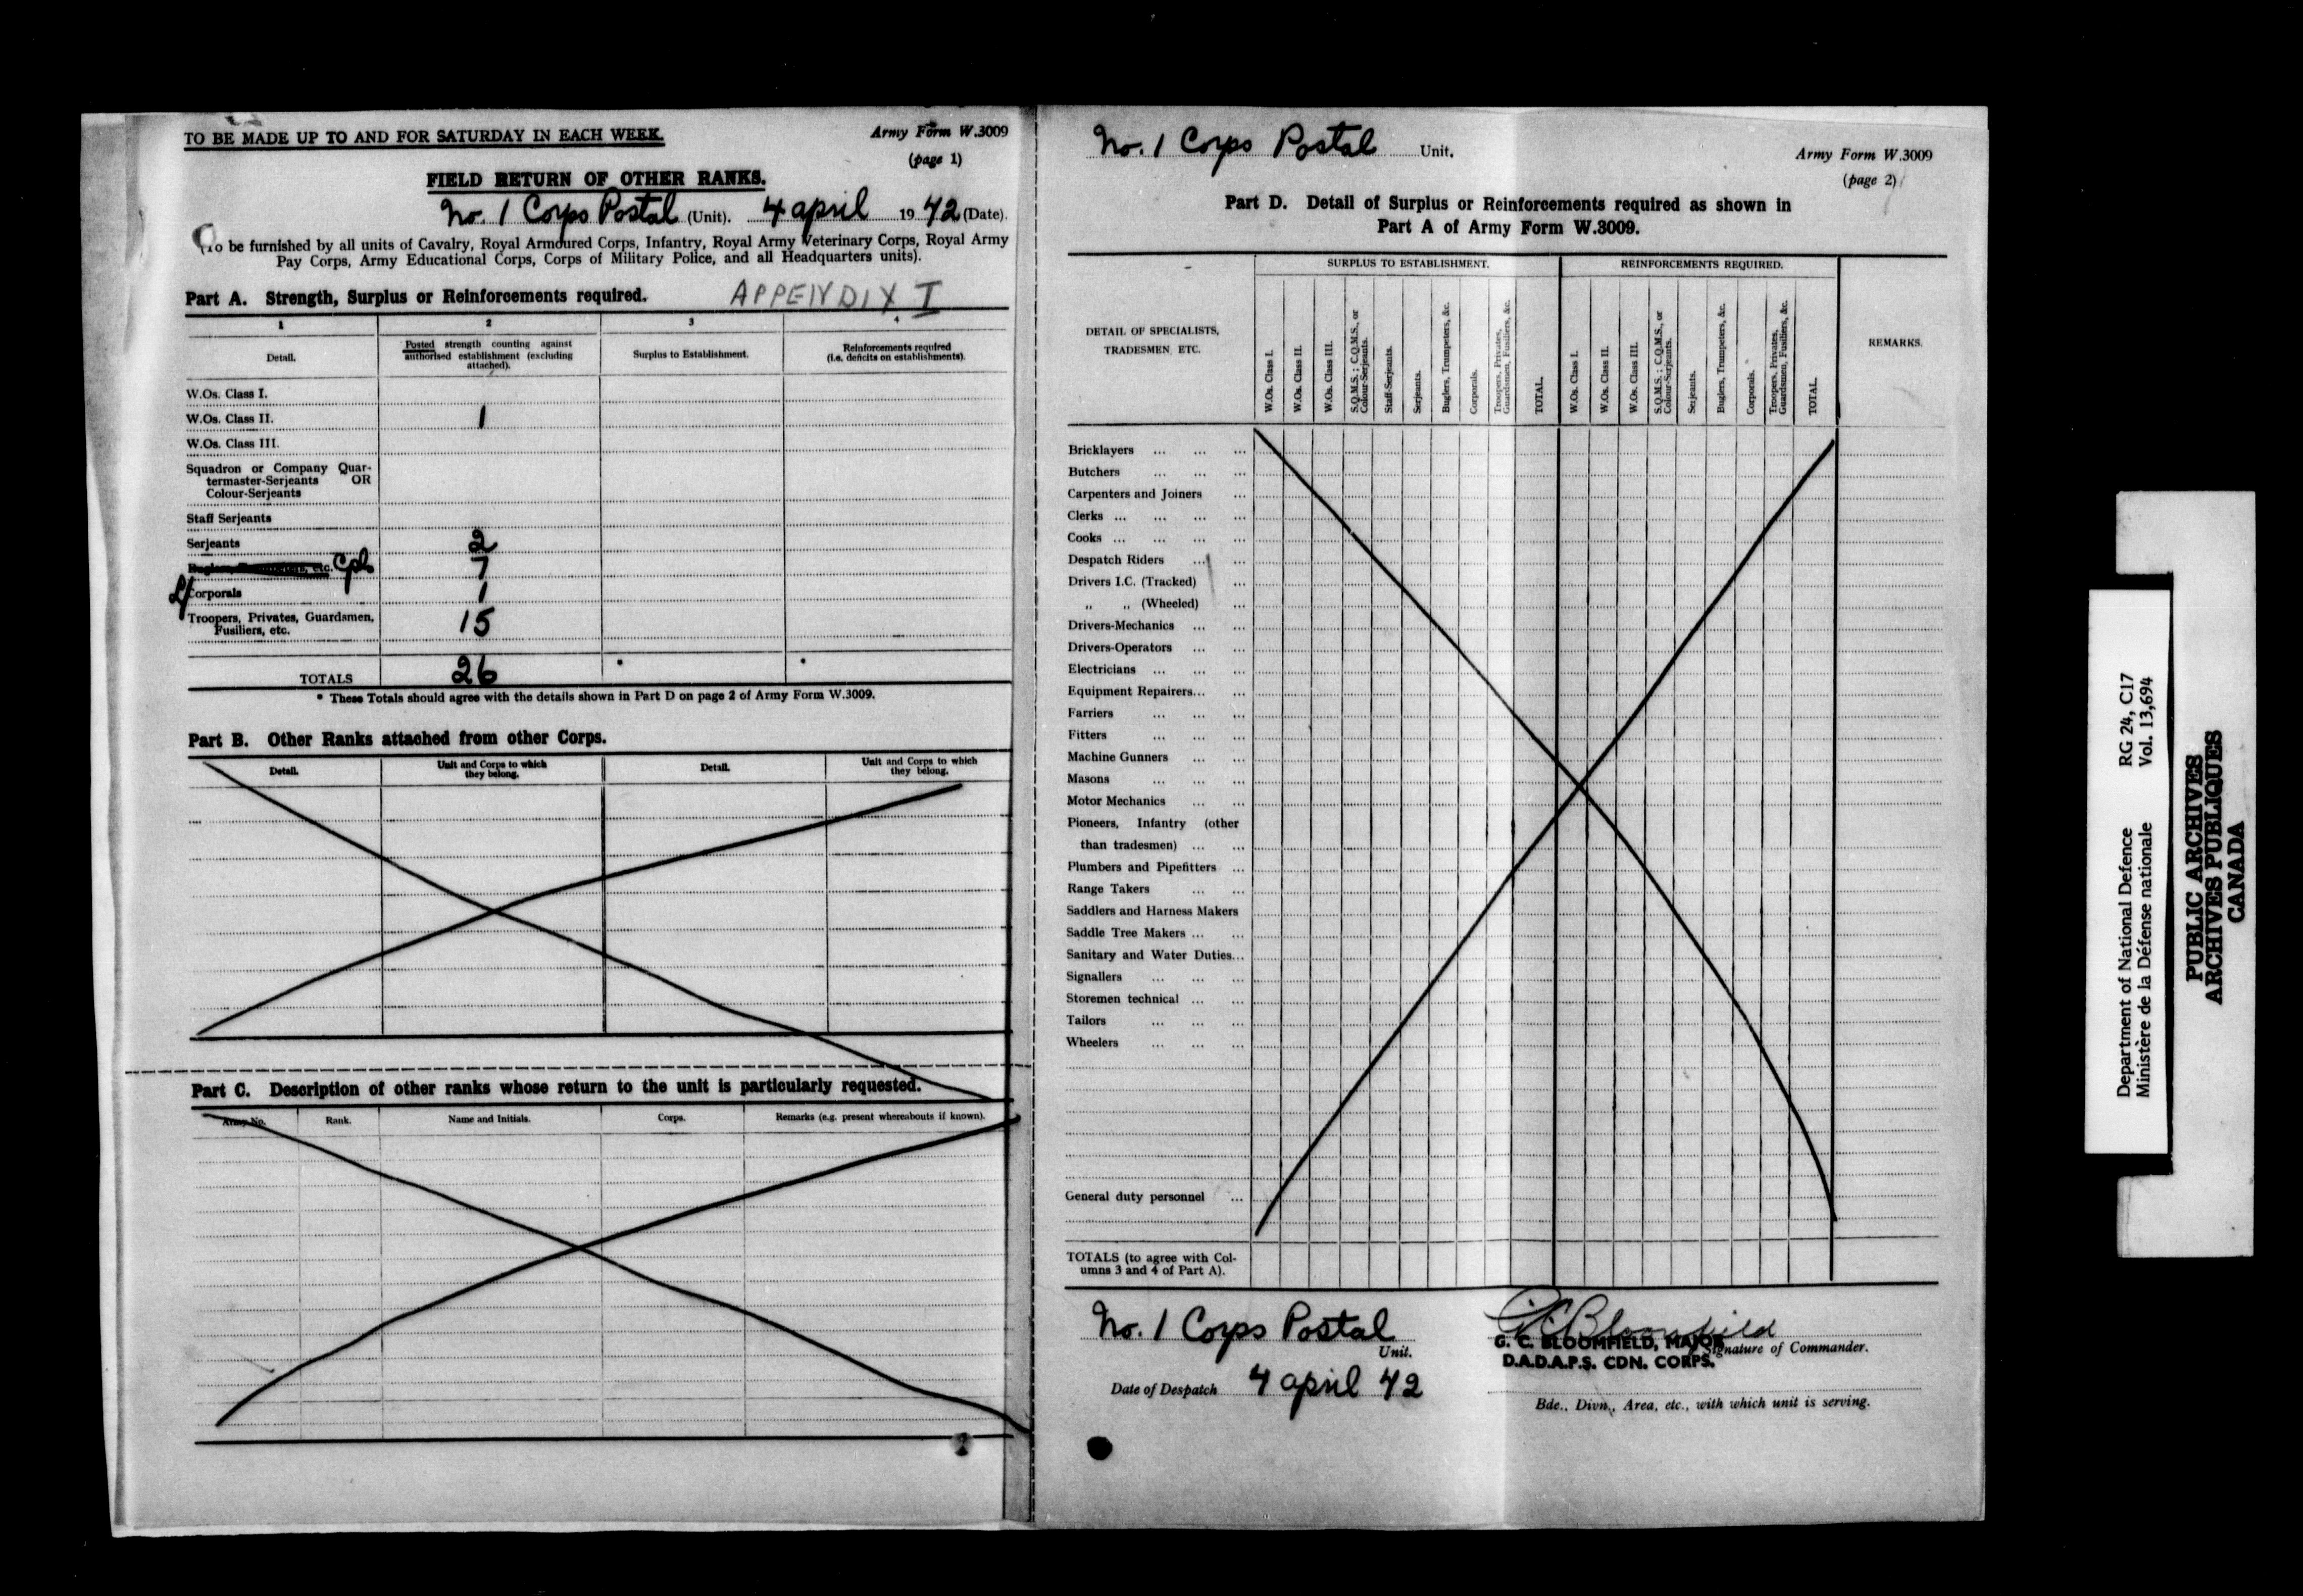 TO BE MADE UP TO AND FOR SATURDAY IN EACH WEEK.
Army Form W.3009
(page 1)
FIELD RETURN OF OTHER RANKS.
No. 1 Corps Postal (Unit). 4 april 1942 (Date).
(To be furnished by all units of Cavalry, Royal Armoured Corps, Infantry, Royal Army Veterinary Corps, Royal Army
Pay Corps, Army Educational Corps, Corps of Military Police, and all Headquarters units).
Part A. Strength, Surplus or Reinforcements required.
APPENDIX I
1 2 3 4
Detail.
Posted strength counting against
authorised establishment (excluding
attached).
Surplus to Establishment.
Reinforcements required
(i.e. deficits on establishments).
W.Os. Class I.
W.Os. Class II. 1
W.Os. Class III.
Squadron or Company Quar-
termaster-Serjeants OR
Colour-Serjeants
Staff Serjeants
Serjeants 2
etc. Cpls 7
L/Corporals 1
Troopers, Privates, Guardsmen, 15
Fusiliers, etc.
TOTALS 26 * *
* These Totals should agree with the details shown in Part D on page 2 of Army Form W.3009.
Part B. Other Ranks attached from other Corps.
Detail.
Unit and Corps to which
they belong.
Detail.
Unit and Corps to which
they belong.
Part C. Description of other ranks whose return to the unit is particularly requested.
Army No. Rank. Name and Initials. Corps. Remarks (e.g. present whereabouts if known).
No. 1 Corps Postal Unit.
Army Form W.3009
(page 2)
Part D. Detail of Surplus or Reinforcements required as shown in
Part A of Army Form W.3009.
DETAIL OF SPECIALISTS,
TRADESMEN, ETC.
SURPLUS TO ESTABLISHMENT.
W.Os. Class I.
W.Os. Class II.
W.Os. Class III.
S.Q.M.S.; C.Q.M.S., or
Colour-Serjeants.
Staff-Serjeants.
Serjeants.
Buglers, Trumpeters, &c.
Corporals.
Troopers, Privates,
Guardsmen, Fusiliers, &c.
TOTAL.
REINFORCEMENTS REQUIRED.
W.Os. Class I.
W.Os. Class II.
W.Os. Class III.
S.Q.M.S.; C.Q.M.S., or
Colour-Serjeants.
Serjeants.
Buglers, Trumpeters, &c.
Corporals.
Troopers, Privates,
Guardsmen, Fusiliers, &c.
TOTAL.
REMARKS.
Bricklayers ... ... ...
Butchers ... ... ...
Carpenters and Joiners ...
Clerks ... ... ... ...
Cooks ... ... ... ...
Despatch Riders ... ...
Drivers I.C. (Tracked) ...
„ „ (Wheeled) ...
Drivers-Mechanics ... ...
Drivers-Operators ... ...
Electricians ... ... ...
Equipment Repairers... ...
Farriers ... ... ...
Fitters ... ... ...
Machine Gunners ... ...
Masons ... ... ...
Motor Mechanics ... ...
Pioneers, Infantry (other
than tradesmen) ... ...
Plumbers and Pipefitters ...
Range Takers ... ...
Saddlers and Harness Makers
Saddle Tree Makers ... ...
Sanitary and Water Duties...
Signallers ... ... ...
Storemen technical ... ...
Tailors ... ... ...
Wheelers ... ... ...
General duty personnel ...
TOTALS (to agree with Col-
umns 3 and 4 of Part A).
No. 1 Corps Postal
Unit.
Date of Despatch 4 april 42
G C Bloomfield
G. C. BLOOMFIELD, MAJOR
Signature of Commander.
D.A.D.A.P.S. CDN. CORPS.
Bde., Divn., Area, etc., with which unit is serving.
Department of National Defence RG 24, C17
Ministère de la Défense nationale Vol. 13,694
PUBLIC ARCHIVES
ARCHIVES PUBLIQUES
CANADA